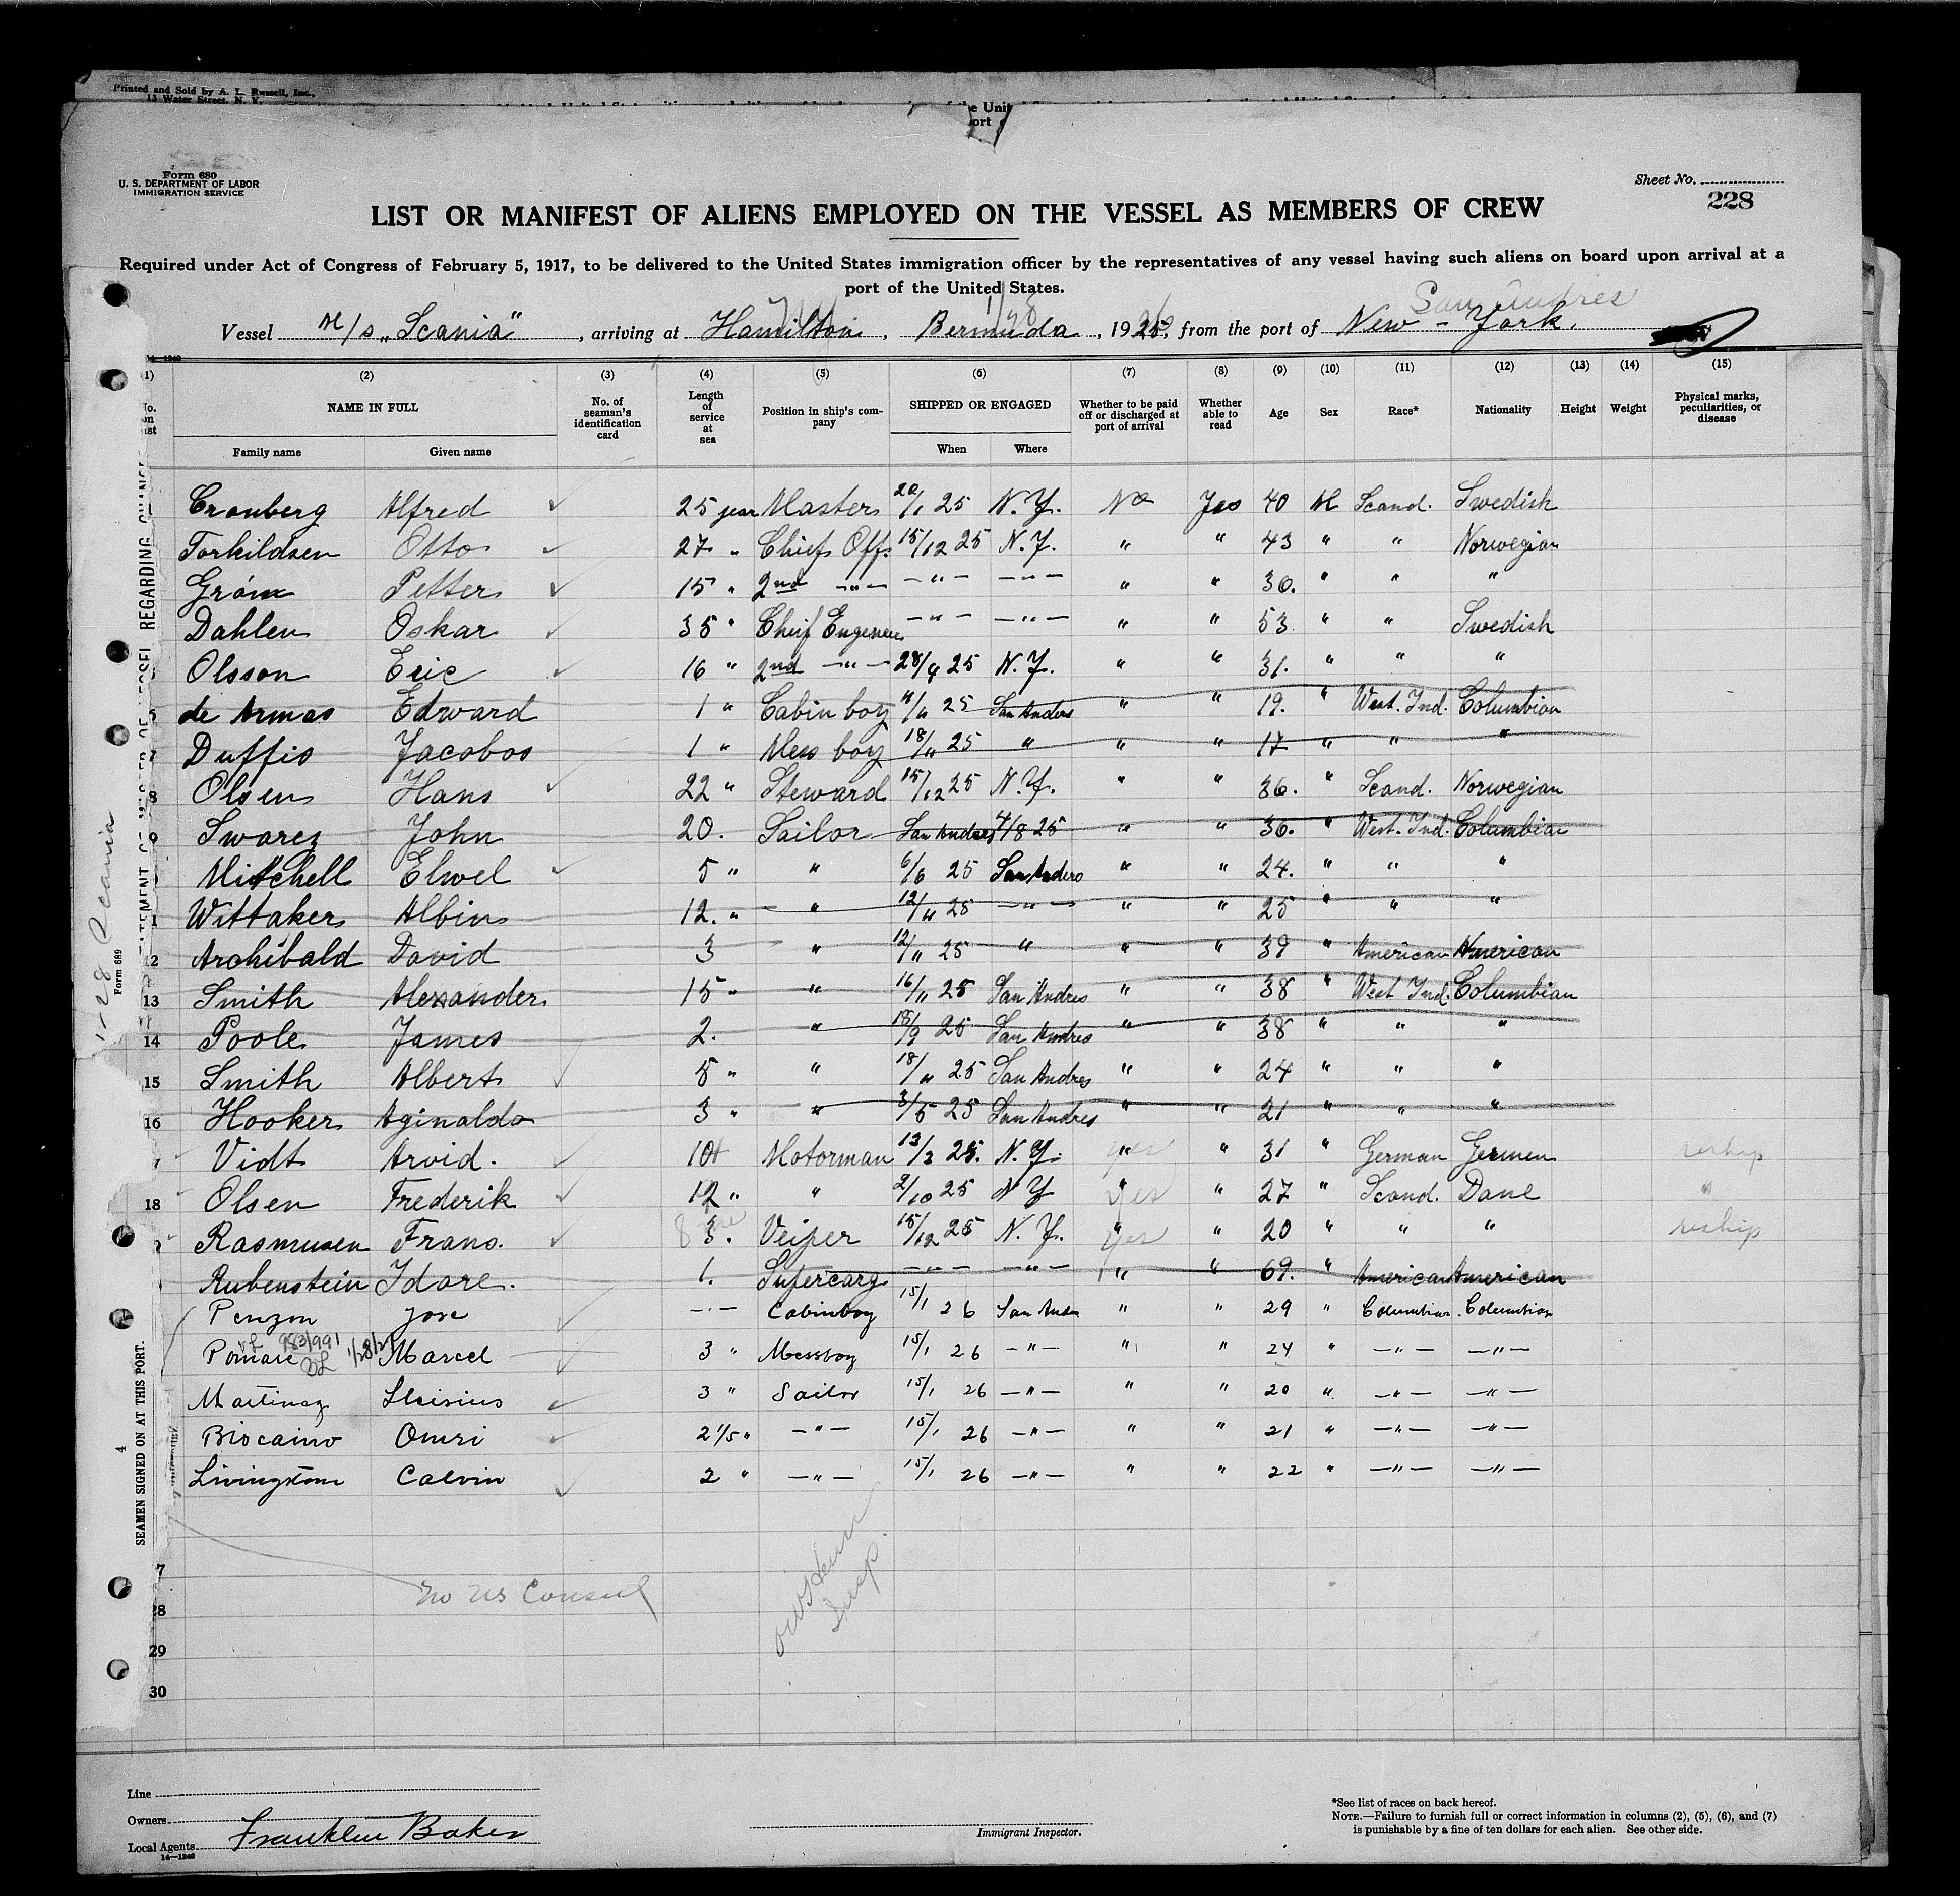 Printed and Sold by A. L. Russell, Inc.,
13 Water Street, N. Y.
Form 680
U. S. DEPARTMENT OF LABOR
IMMIGRATION SERVICE
Sheet No.
228
LIST OR MANIFEST OF ALIENS EMPLOYED ON THE VESSEL AS MEMBERS OF CREW
Required under Act of Congress of February 5, 1917, to be delivered to the United States immigration officer by the representatives of any vessel having such aliens on board upon arrival at a
port of the United States.
San Andres
Vessel M/s „Scania" , arriving at Hamilton , Bermuda , 1925, from the port of New - York.
(2) (3) (4) (5) (6) (7) (8) (9) (10) (11) (12) (13) (14) (15)
NAME IN FULL No. of seaman's identification card Length of service at sea Position in ship's company SHIPPED OR ENGAGED Whether to be paid off or discharged at port of arrival Whether able to read Age Sex Race* Nationality Height Weight Physical marks, peculiarities, or disease
Family name Given name When Where
Cronberg Alfred ✓ 25 year Master 20/1 25 N. Y. No Yes 40 M Scand. Swedish
Torkildsen Otto ✓ 27 " Chief Off. 15/12 25 N. Y. " " 43 " " Norwegian
Gróm Petter ✓ 15 " 2nd —"— —"— —"— " " 30. " " "
Dahlen Oskar ✓ 35 " Cheif Engeneer —"— —"— " " 53 " " Swedish
Olsson Eric ✓ 16 " 2nd —"— 28/4 25 N. Y. " " 31. " " "
de Armas Edward 1 " Cabin boy 11/11 25 San Anders " " 19. " West. Ind. Columbian
Duffis Jacobos 1 " Mess boy 18/11 25 " " " 17 " " "
8 Olsen Hans ✓ 22 " Steward 15/12 25 N. Y. " " 36. " Scand. Norwegian
9 Swarez John 20. Sailor San Anders 4/8 25 " " 36. " West. Ind. Columbian
Mitchell Elwel ✓ 5 " " 6/6 25 San Anders " " 24. " " "
Wittaker Albin 12. " " 12/11 25 —"— " " 25 " " "
12 Archibald David 3 " 12/11 25 " " " 39 " American American
13 Smith Alexander 15 " " 16/11 25 San Andres " " 38 " West Ind. Columbian
14 Poole James 2. " 18/9 25 San Andres " " 38 " " "
15 Smith Albert ✓ 5 " " 18/11 25 San Andres " " 24 " " "
16 Hooker Aginaldo 3 " " 3/5 25 San Andres " " 21 " " "
Vidt Arvid. ✓ 10 Motorman 13/3 25. N. Y. " yes " 31 " German Germen reship
18 Olsen Frederik ✓ 12 " " 2/10 25 N Y " yes " 27 " Scand. Dane "
Rasmusen Frans. ✓ 3. Veiper 15/12 25 N. Y. " yes " 20 " " " reship
Rubenstein Idore. 1. Supercarg —"— —"— " " 69. " American American
Penzon Jose ✓ —"— Cabinboy 15/1 26 San Andr " " 29 " Columbian. Columbian
983/991
Pomare Marcel ✓ 3 " Messboy 15/1 26 —"— " " 24 " —"— —"—
Martinez ✓ 3 " Sailor 15/1 26 —"— " " 20 " —"— —"—
Biscaino Omri ✓ 2 1/5 " —"— 15/1 26 —"— " " 21 " —"— —"—
Livingstone Calvin ✓ 2 " —"— 15/1 26 —"— " " 22 " —"— —"—
7
no us Consul
28
29
30
1-28 Scania
Form 689
SEAMEN SIGNED ON AT THIS PORT.
4
Line
Owners
Local Agents Franklin Baker
14—1240
Immigrant Inspector.
*See list of races on back hereof.
NOTE.—Failure to furnish full or correct information in columns (2), (5), (6), and (7)
is punishable by a fine of ten dollars for each alien. See other side.